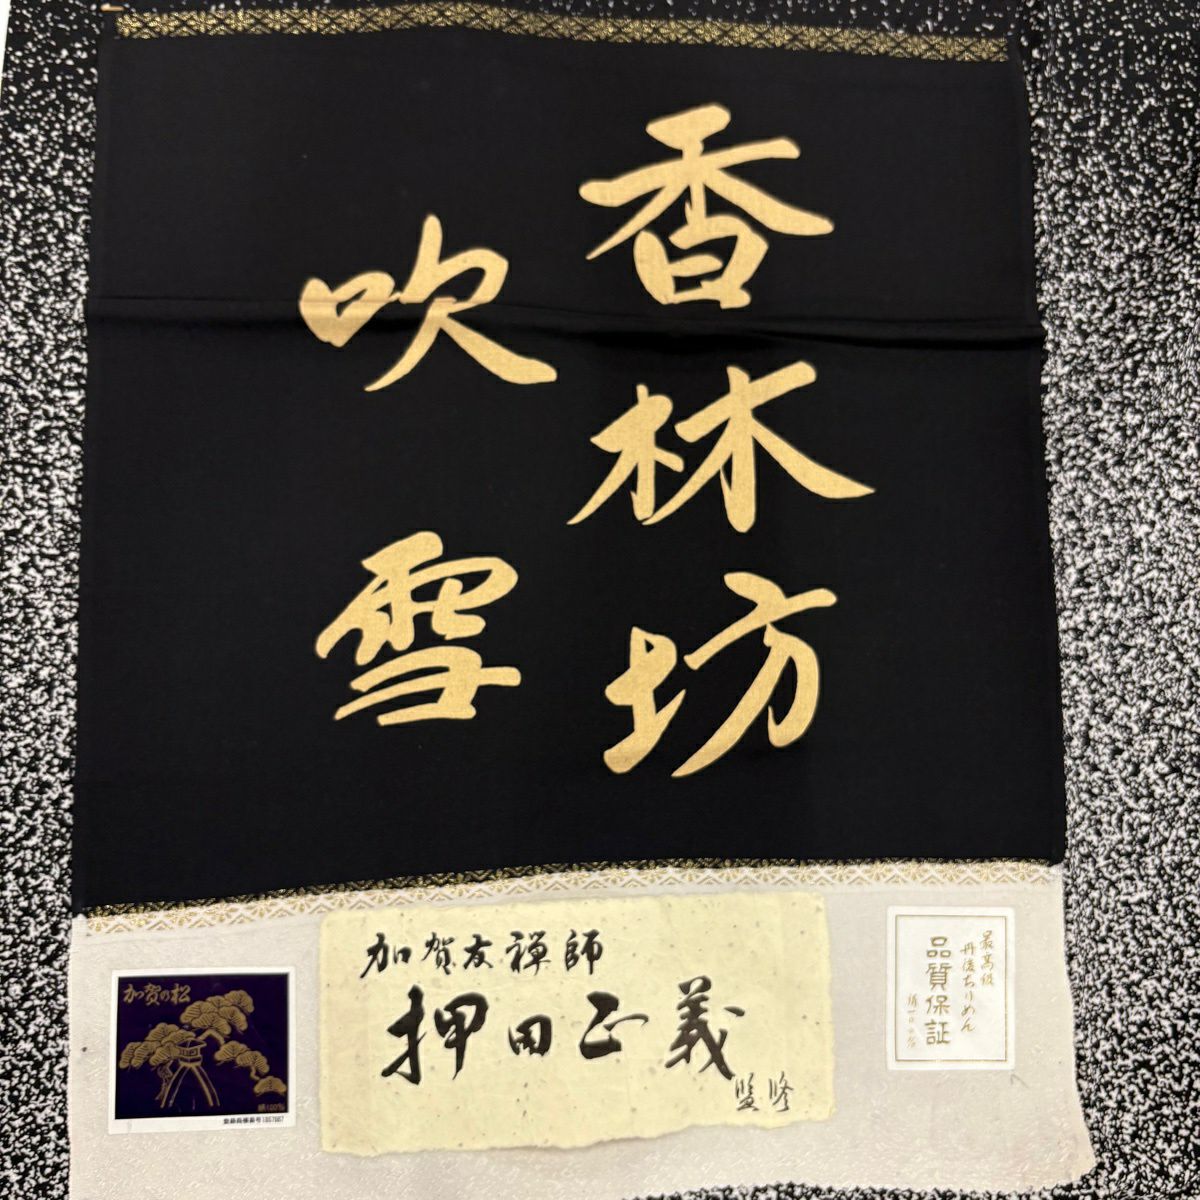 香林坊
吹雪
加賀友禅師
押田正義
監修
加賀の松
絹100%
最高級
丹後ちりめん
品質保証
絹一〇〇%